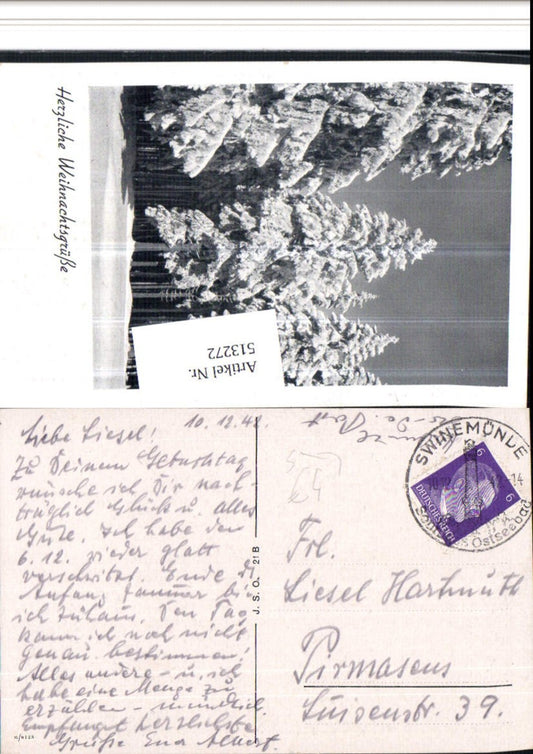 Herzliche Weihnachtsgrüße
Artikel Nr.
513272
10.12.42.
Liebe Liesel!
Zu Deinem Geburtstag
wünsche ich Dir nach-
träglich Glück u. alles
Gute. Ich habe den
6.12. wieder glatt
Ende d.
Anfang Januar bin
ich zuhaus. Den Tag
kann ich noch nicht
genau bestimmen!
Alles andere - u. ich
habe eine Menge zu
erzählen - mündlich.
Empfangt herzlichste
Grüße Euer Albert.
J. S. O. 21 B
SWINEMÜNDE
Ostseebad
14
6
6
DEUTSCHES REICH
Frl.
Liesel Hartmuth
Pirmasens
Luisenstr. 39.